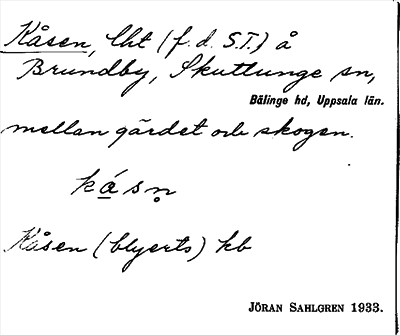 Kåsen, lht (f.d. S.T.) å
Brundby, Skuttunge sn,
Bälinge hd, Uppsala län.
mellan gärdet och skogen.
kásn̥
Kåsen (blyerts) kb
JÖRAN SAHLGREN 1933.